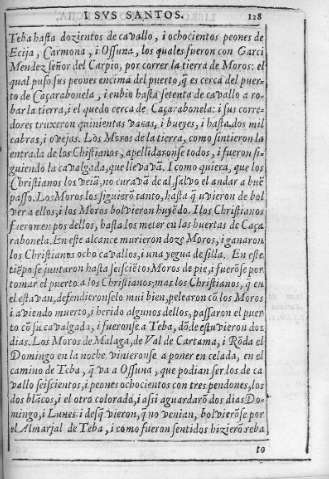 I SVS SANTOS. 128
Teba hasta dozientos de cavallo, i ochocientos peones de
Ecija, Carmona, i Ossuna, los quales fueron con Garci
Mendez señor del Carpio, por correr la tierra de Moros: el
qual puso sus peones encima del puerto, q̃ es cerca del puer-
to de Caçarabonela, i enbio hasta setenta de cavallo a ro-
bar la tierra, i el quedo cerca de Caçarabonela: i sus corre-
dores truxeron quinientas vacas, i bueyes, i hasta dos mil
cabras, i ovejas. Los Moros de la tierra, como sintieron la
entrada de los Christianos, apellidaronse todos, i fueron si-
guiendo la cavalgada, que lievavã. I como quiera, que los
Christianos los veiã, no curavã de al, salvo el andar a buẽ
passo. Los Moros los siguierõ tanto, hasta q̃ uvieron de bol
ver a ellos; i los Moros bolvieron huyẽdo. I los Christianos
fueron en pos dellos, hasta los meter en las huertas de Caça
rabonela. En este alcance murieron doze Moros, i ganaron
los Christianos ocho cavallos, i una yegua de silla. En este
tiẽpo se juntaron hasta seisciẽtos Moros de pie, i fuerõse por
tomar el puerto a los Christianos; mas los Christianos, q̃ en
el estavan, defendieronselo mui bien, pelearon cõ los Moros
i aviendo muerto, i herido algunos dellos, passaron el puer
to cõ su cavalgada, i fueronse a Teba, dõde estuvieron dos
dias. Los Moros de Malaga, de Val de Cartama, i Rõda el
Domingo en la noche vinieronse a poner en celada, en el
camino de Teba, q̃ va a Ossuna, que podian ser los de ca
vallo seiscientos, i peones ochocientos con tres pendones, los
dos blãcos, i el otro colorado, i assi aguardarõ dos dias Do-
mingo, i Lunes: i desq̃ vieron, q̃ no venian, bolvierõse por
el Almarjal de Teba, i como fueron sentidos hizierõ reba
to